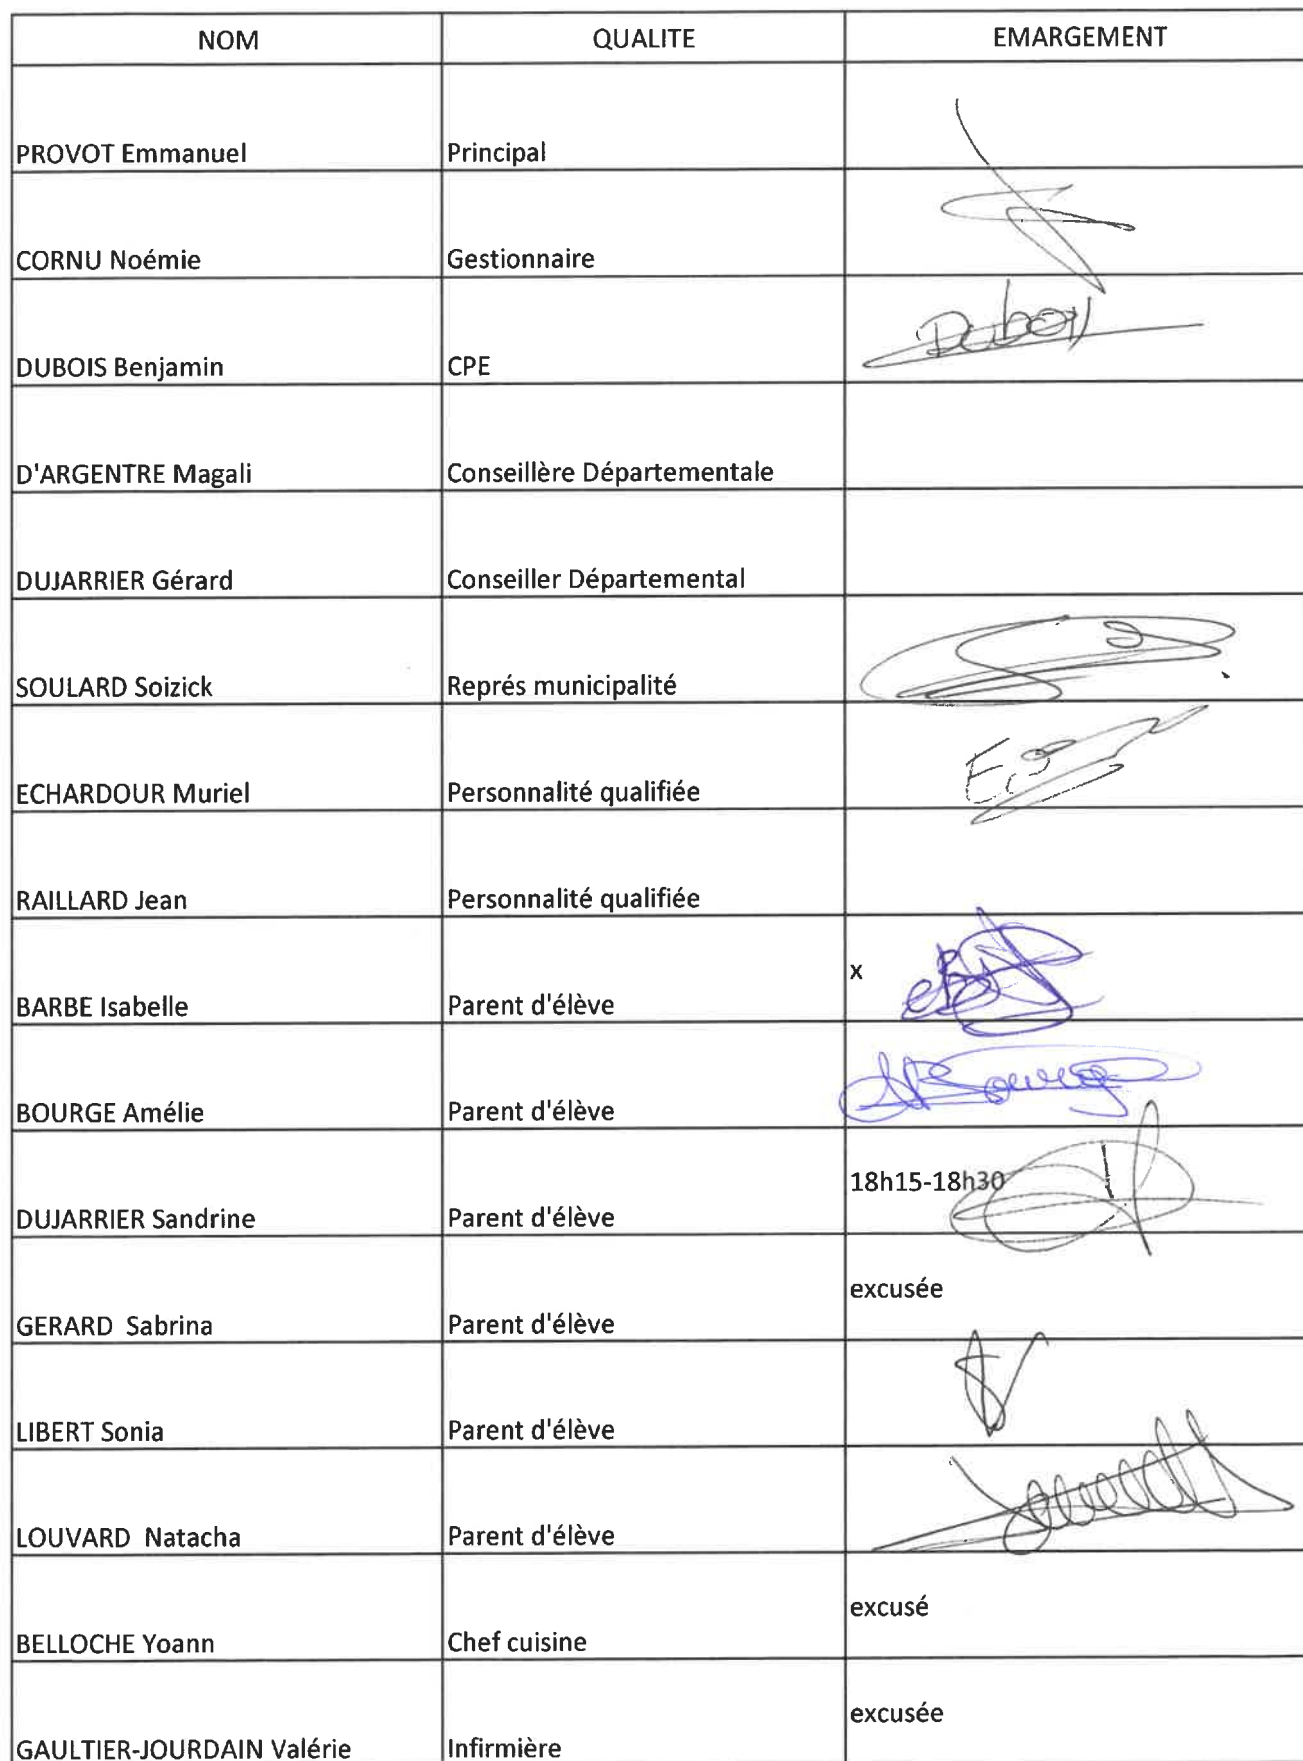 NOM QUALITE EMARGEMENT
PROVOT Emmanuel Principal
CORNU Noémie Gestionnaire
DUBOIS Benjamin CPE Dubois
D'ARGENTRE Magali Conseillère Départementale
DUJARRIER Gérard Conseiller Départemental
SOULARD Soizick Représ municipalité
ECHARDOUR Muriel Personnalité qualifiée
RAILLARD Jean Personnalité qualifiée
x
BARBE Isabelle Parent d'élève
BOURGE Amélie Parent d'élève ABourge
18h15-18h30
DUJARRIER Sandrine Parent d'élève
excusée
GERARD  Sabrina Parent d'élève
LIBERT Sonia Parent d'élève
LOUVARD  Natacha Parent d'élève
excusé
BELLOCHE Yoann Chef cuisine
excusée
GAULTIER-JOURDAIN Valérie Infirmière